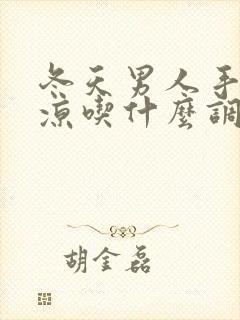 冬天男人手
涼喫什麼調
胡金磊